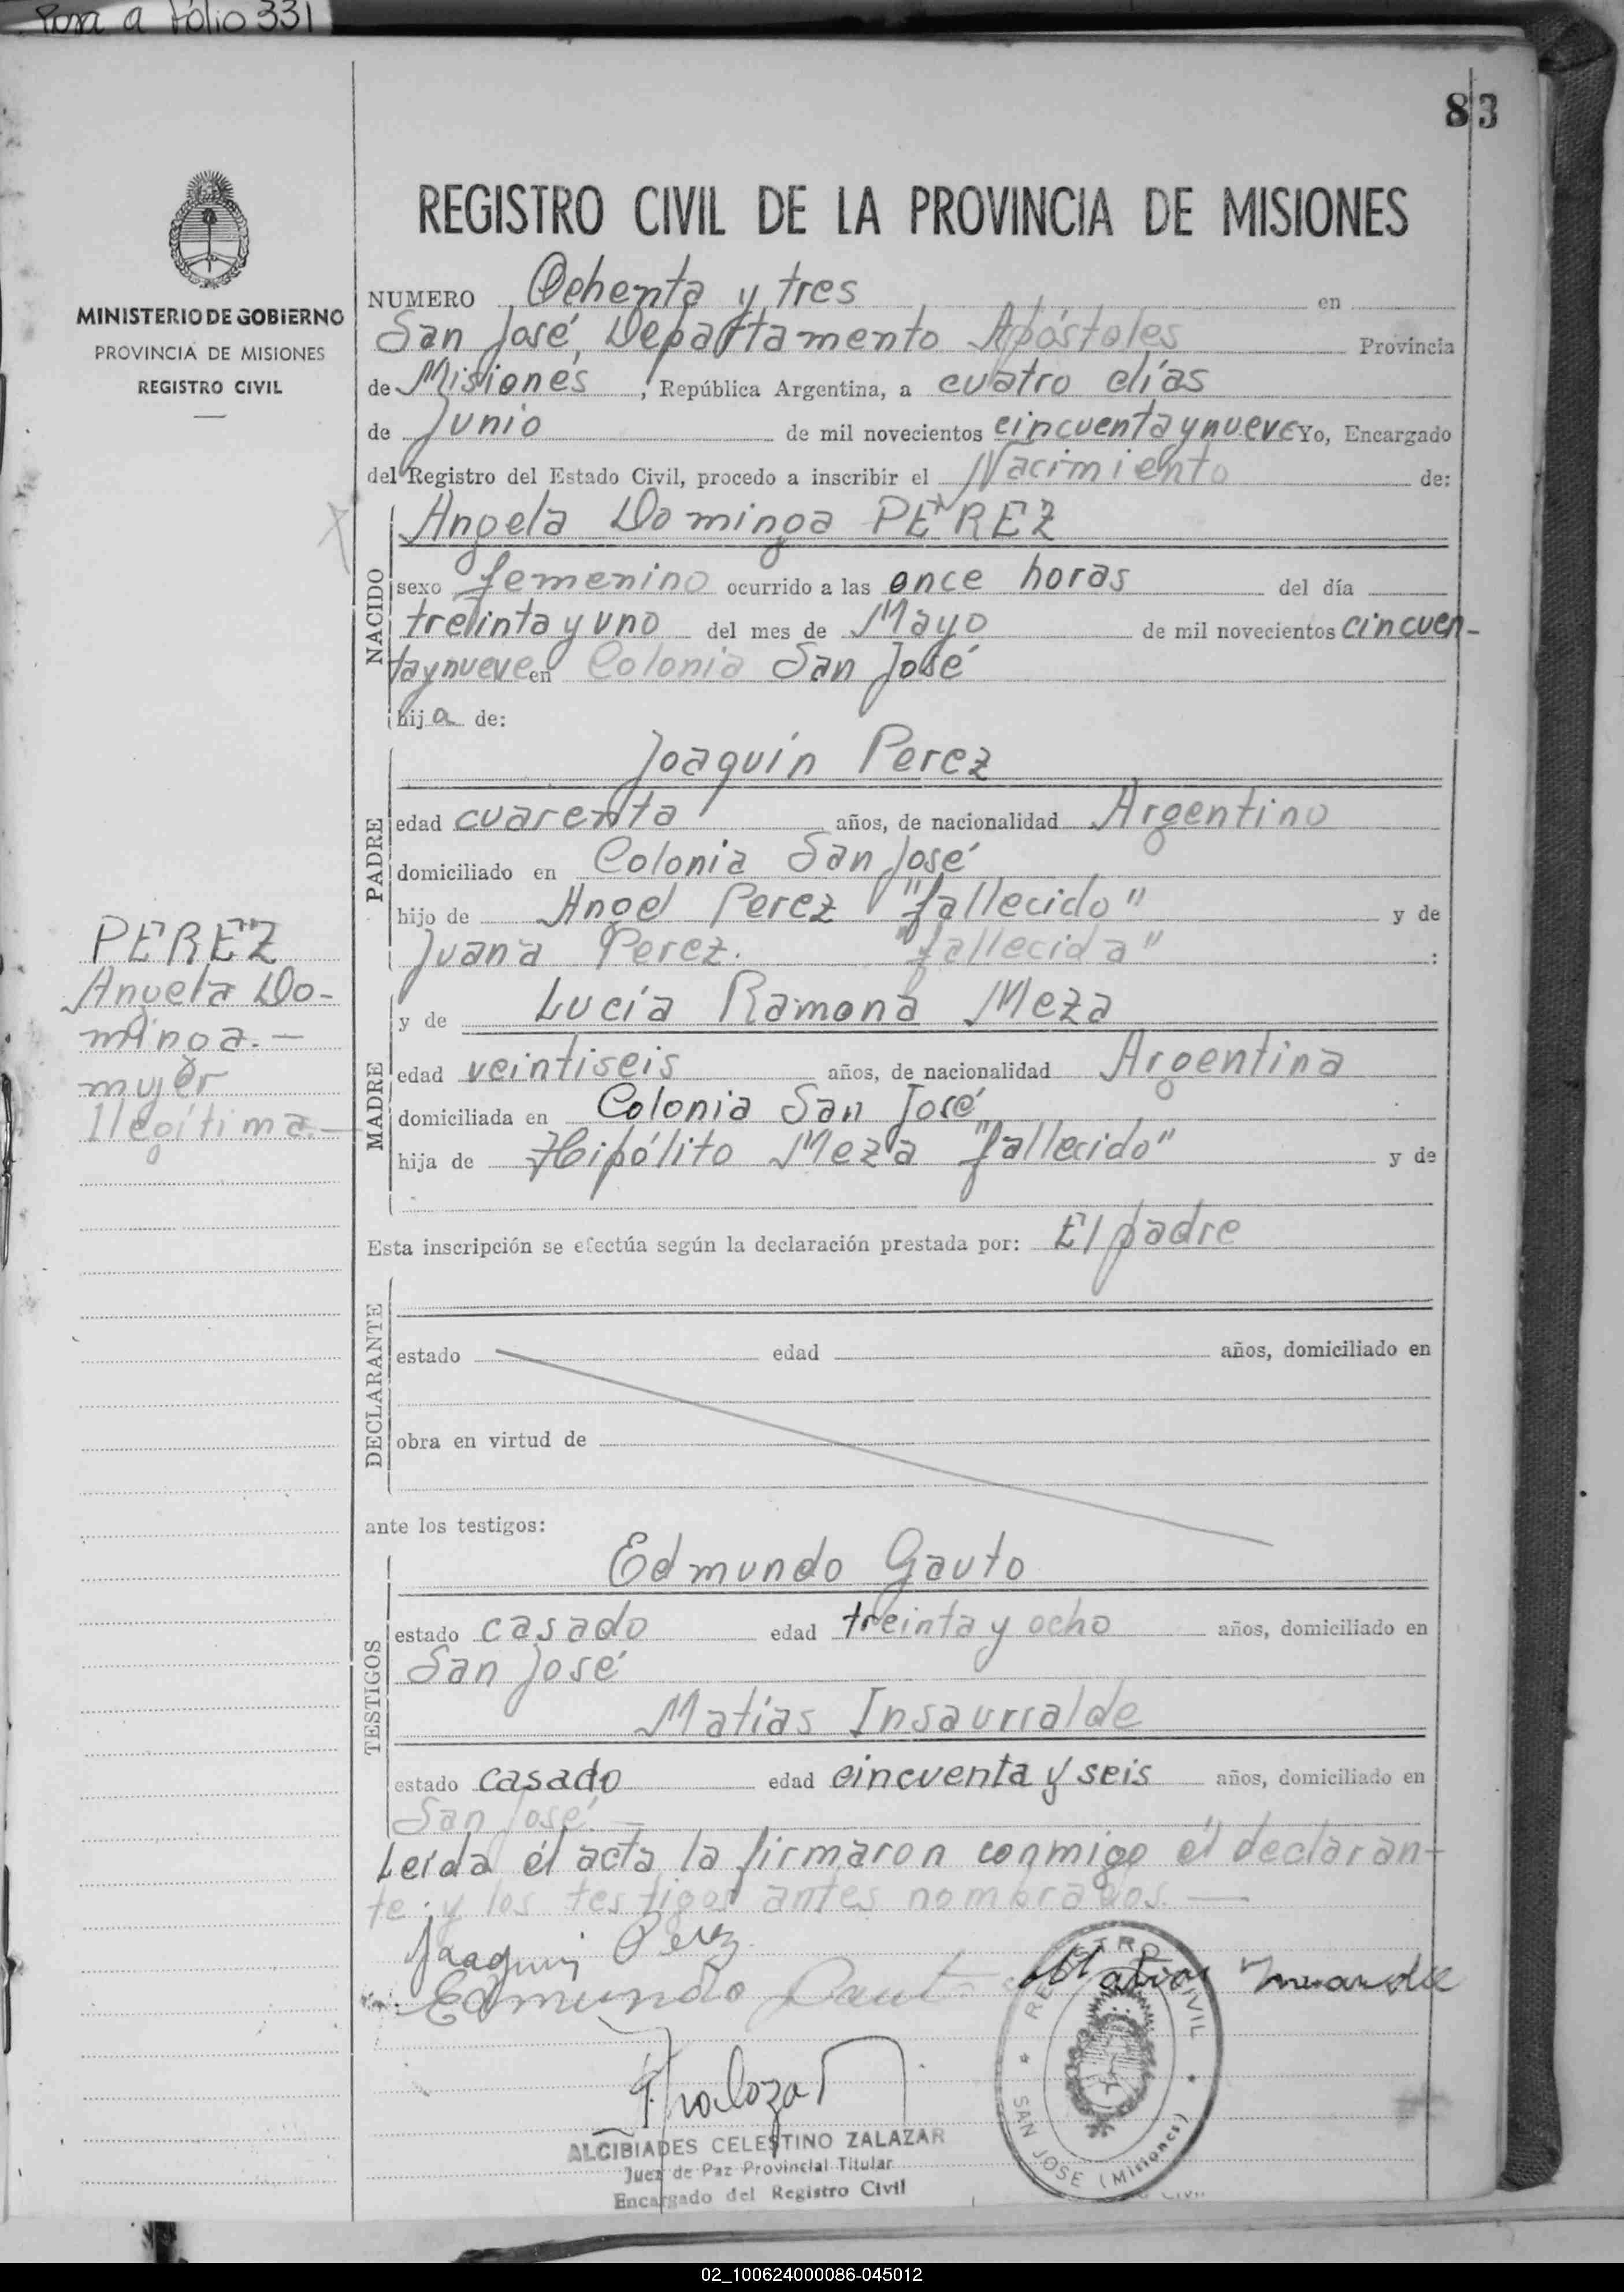 Pasa a folio 331
83
REGISTRO CIVIL DE LA PROVINCIA DE MISIONES
MINISTERIO DE GOBIERNO
PROVINCIA DE MISIONES
REGISTRO CIVIL
NUMERO Ochenta y tres en
San José, Departamento Apóstoles Provincia
de Misiones, República Argentina, a cuatro días
de Junio de mil novecientos cincuenta y nueve Yo, Encargado
del Registro del Estado Civil, procedo a inscribir el Nacimiento de:
NACIDO
Angela Dominga PEREZ
sexo femenino ocurrido a las once horas del día
treinta y uno del mes de Mayo de mil novecientos cincuen-
ta y nueve en Colonia San José
hija de:
PADRE
Joaquín Perez
edad cuarenta años, de nacionalidad Argentino
domiciliado en Colonia San José
hijo de Angel Perez "fallecido" y de
Juana Perez. "fallecida" :
PEREZ
Angela Do-
minga.-
mujer
Ilegítima.-
MADRE
y de Lucía Ramona Meza
edad veintiseis años, de nacionalidad Argentina
domiciliada en Colonia San José
hija de Hipólito Meza "fallecido" y de
Esta inscripción se efectúa según la declaración prestada por: El padre
DECLARANTE
estado edad años, domiciliado en
obra en virtud de
ante los testigos:
TESTIGOS
Edmundo Gauto
estado casado edad treinta y ocho años, domiciliado en
San José
Matías Insaurralde
estado casado edad cincuenta y seis años, domiciliado en
San José.-
Leída él acta la firmaron conmigo él declaran-
te y los testigos antes nombrados.-
Joaquin Perez
Edmundo Gauto
Matias
REGISTRO CIVIL
SAN JOSE (Misiones)
ALCIBIADES CELESTINO ZALAZAR
Juez de Paz Provincial Titular
Encargado del Registro Civil
02_100624000086-045012